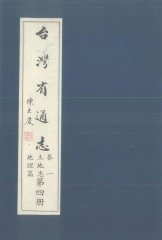 台灣省通志
陳大慶
卷一
土地志
地理篇
第四册